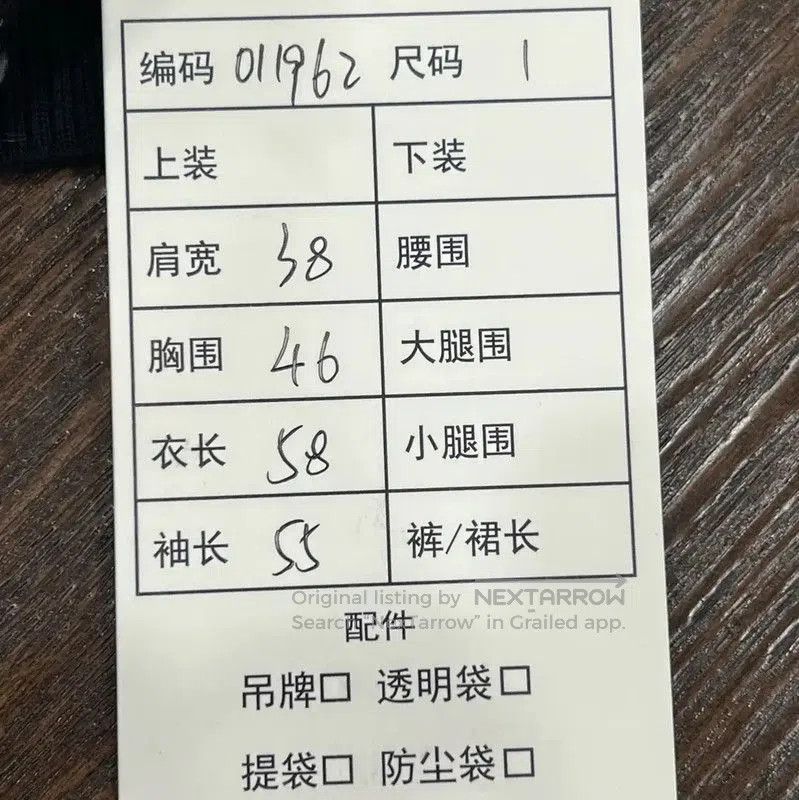 编码 011962 尺码 1
上装 下装
肩宽 38 腰围
胸围 46 大腿围
衣长 58 小腿围
袖长 55 裤/裙长
Original listing by NEXTARROW
Search "NexTarrow" in Grailed app.
配件
吊牌□ 透明袋□
提袋□ 防尘袋□